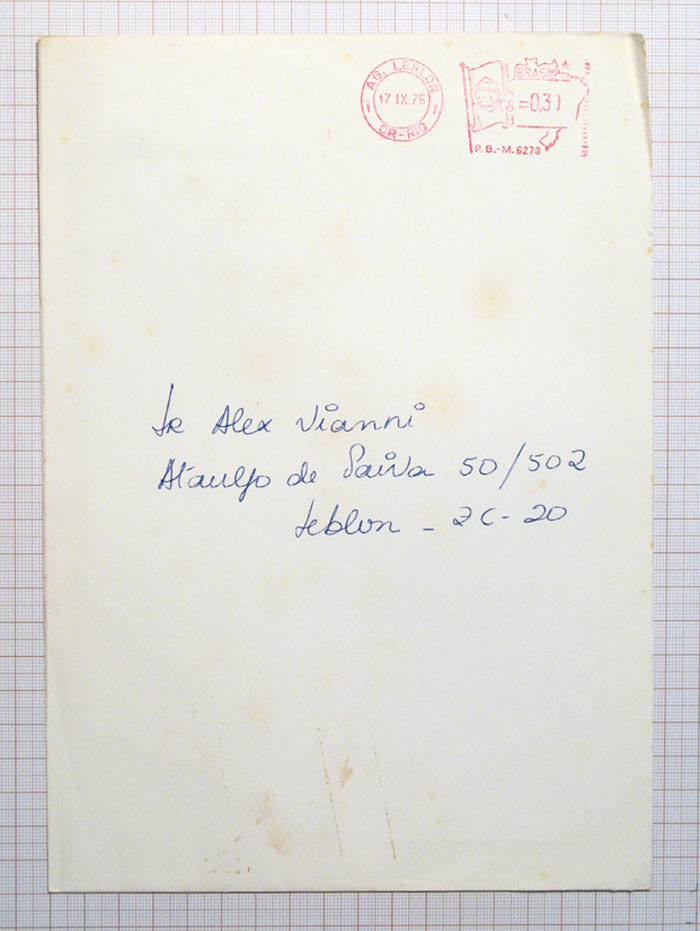 AG. LEBLON
17 IX 76
DR-RIO
BRASIL
=0,30
P.B.-M. 6278
Sr Alex Vianni
Ataulfo de Paiva 50/502
Leblon - ZC-20